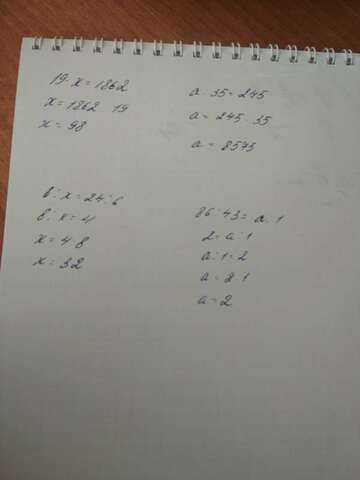 19 · x = 1862
x = 1862 : 19
x = 98
a : 35 = 245
a = 245 · 35
a = 8575
8 : x = 24 : 6
8 : x = 4
x = 4 · 8
x = 32
86 : 43 = a : 1
2 = a : 1
a : 1 = 2
a = 2 · 1
a = 2